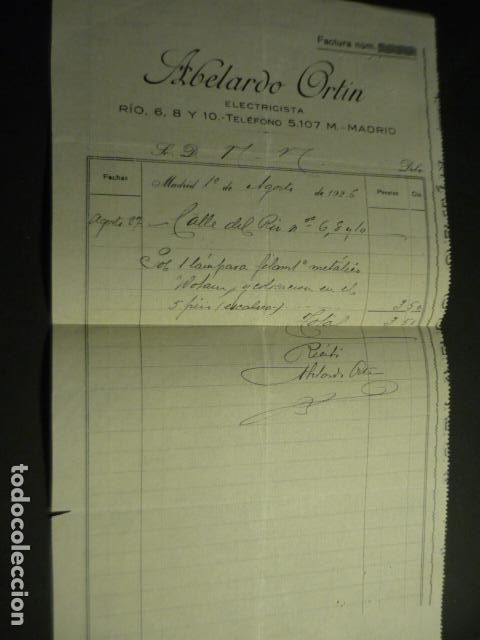 Factura núm.
Abelardo Ortín
ELECTRICISTA
RÍO, 6, 8 Y 10.-TELÉFONO 5.107 M.-MADRID
Sr. D. N. N. Debe
Fechas Madrid 1º de Agosto de 1926 Pesetas Cts.
Agosto 27 — Calle del Rio nos 6, 8 y 10
Por 1 lámpara filamto metálico
y colocación en el
5 piso (escalera) 3 50
Total 3 50
Recibí
Abelardo Ortín
todocoleccion